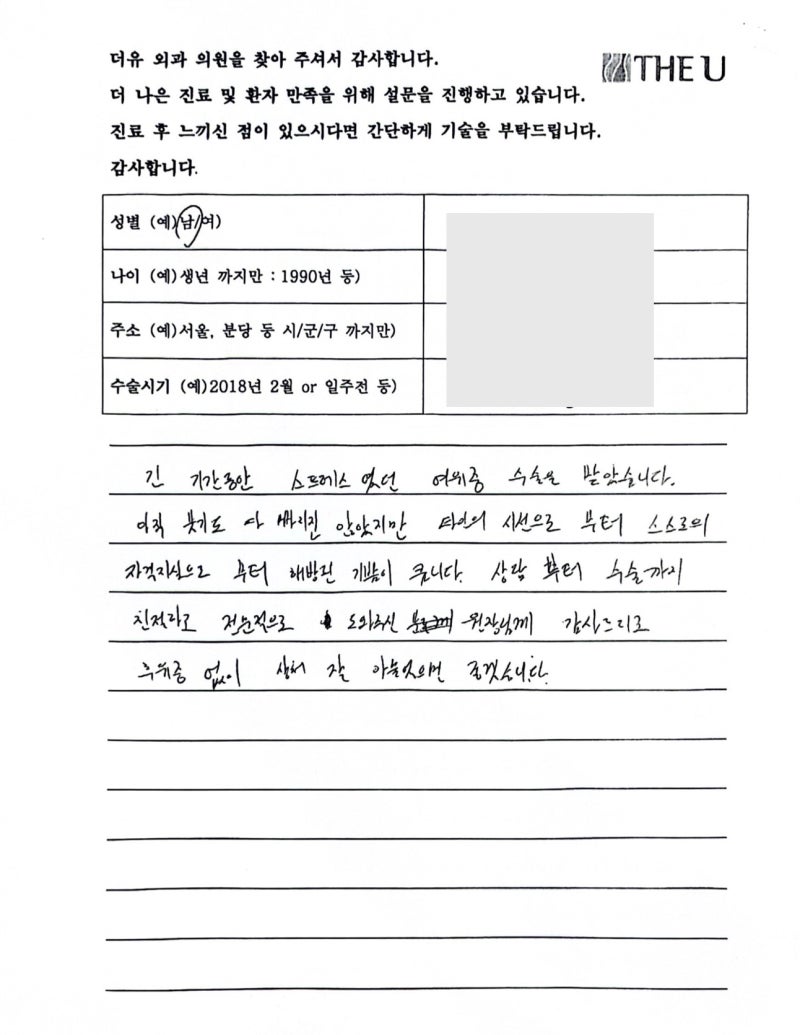 더유 외과 의원을 찾아 주셔서 감사합니다.
THE U
더 나은 진료 및 환자 만족을 위해 설문을 진행하고 있습니다.
진료 후 느끼신 점이 있으시다면 간단하게 기술을 부탁드립니다.
감사합니다.
성별 (예)남/여)
나이 (예)생년 까지만 : 1990년 등)
주소 (예)서울, 분당 등 시/군/구 까지만)
수술시기 (예)2018년 2월 or 일주전 등)
긴 기간동안 스트레스 였던 여유증 수술을 받았습니다.
아직 붓기도 다 빠지진 않았지만 타인의 시선으로 부터 스스로의
자격지심으로 부터 해방된 기쁨이 큽니다. 상담 부터 수술까지
친절하고 전문적으로 도와주신 원장님께 감사드리고
후유증 없이 상처 잘 아물었으면 좋겠습니다.